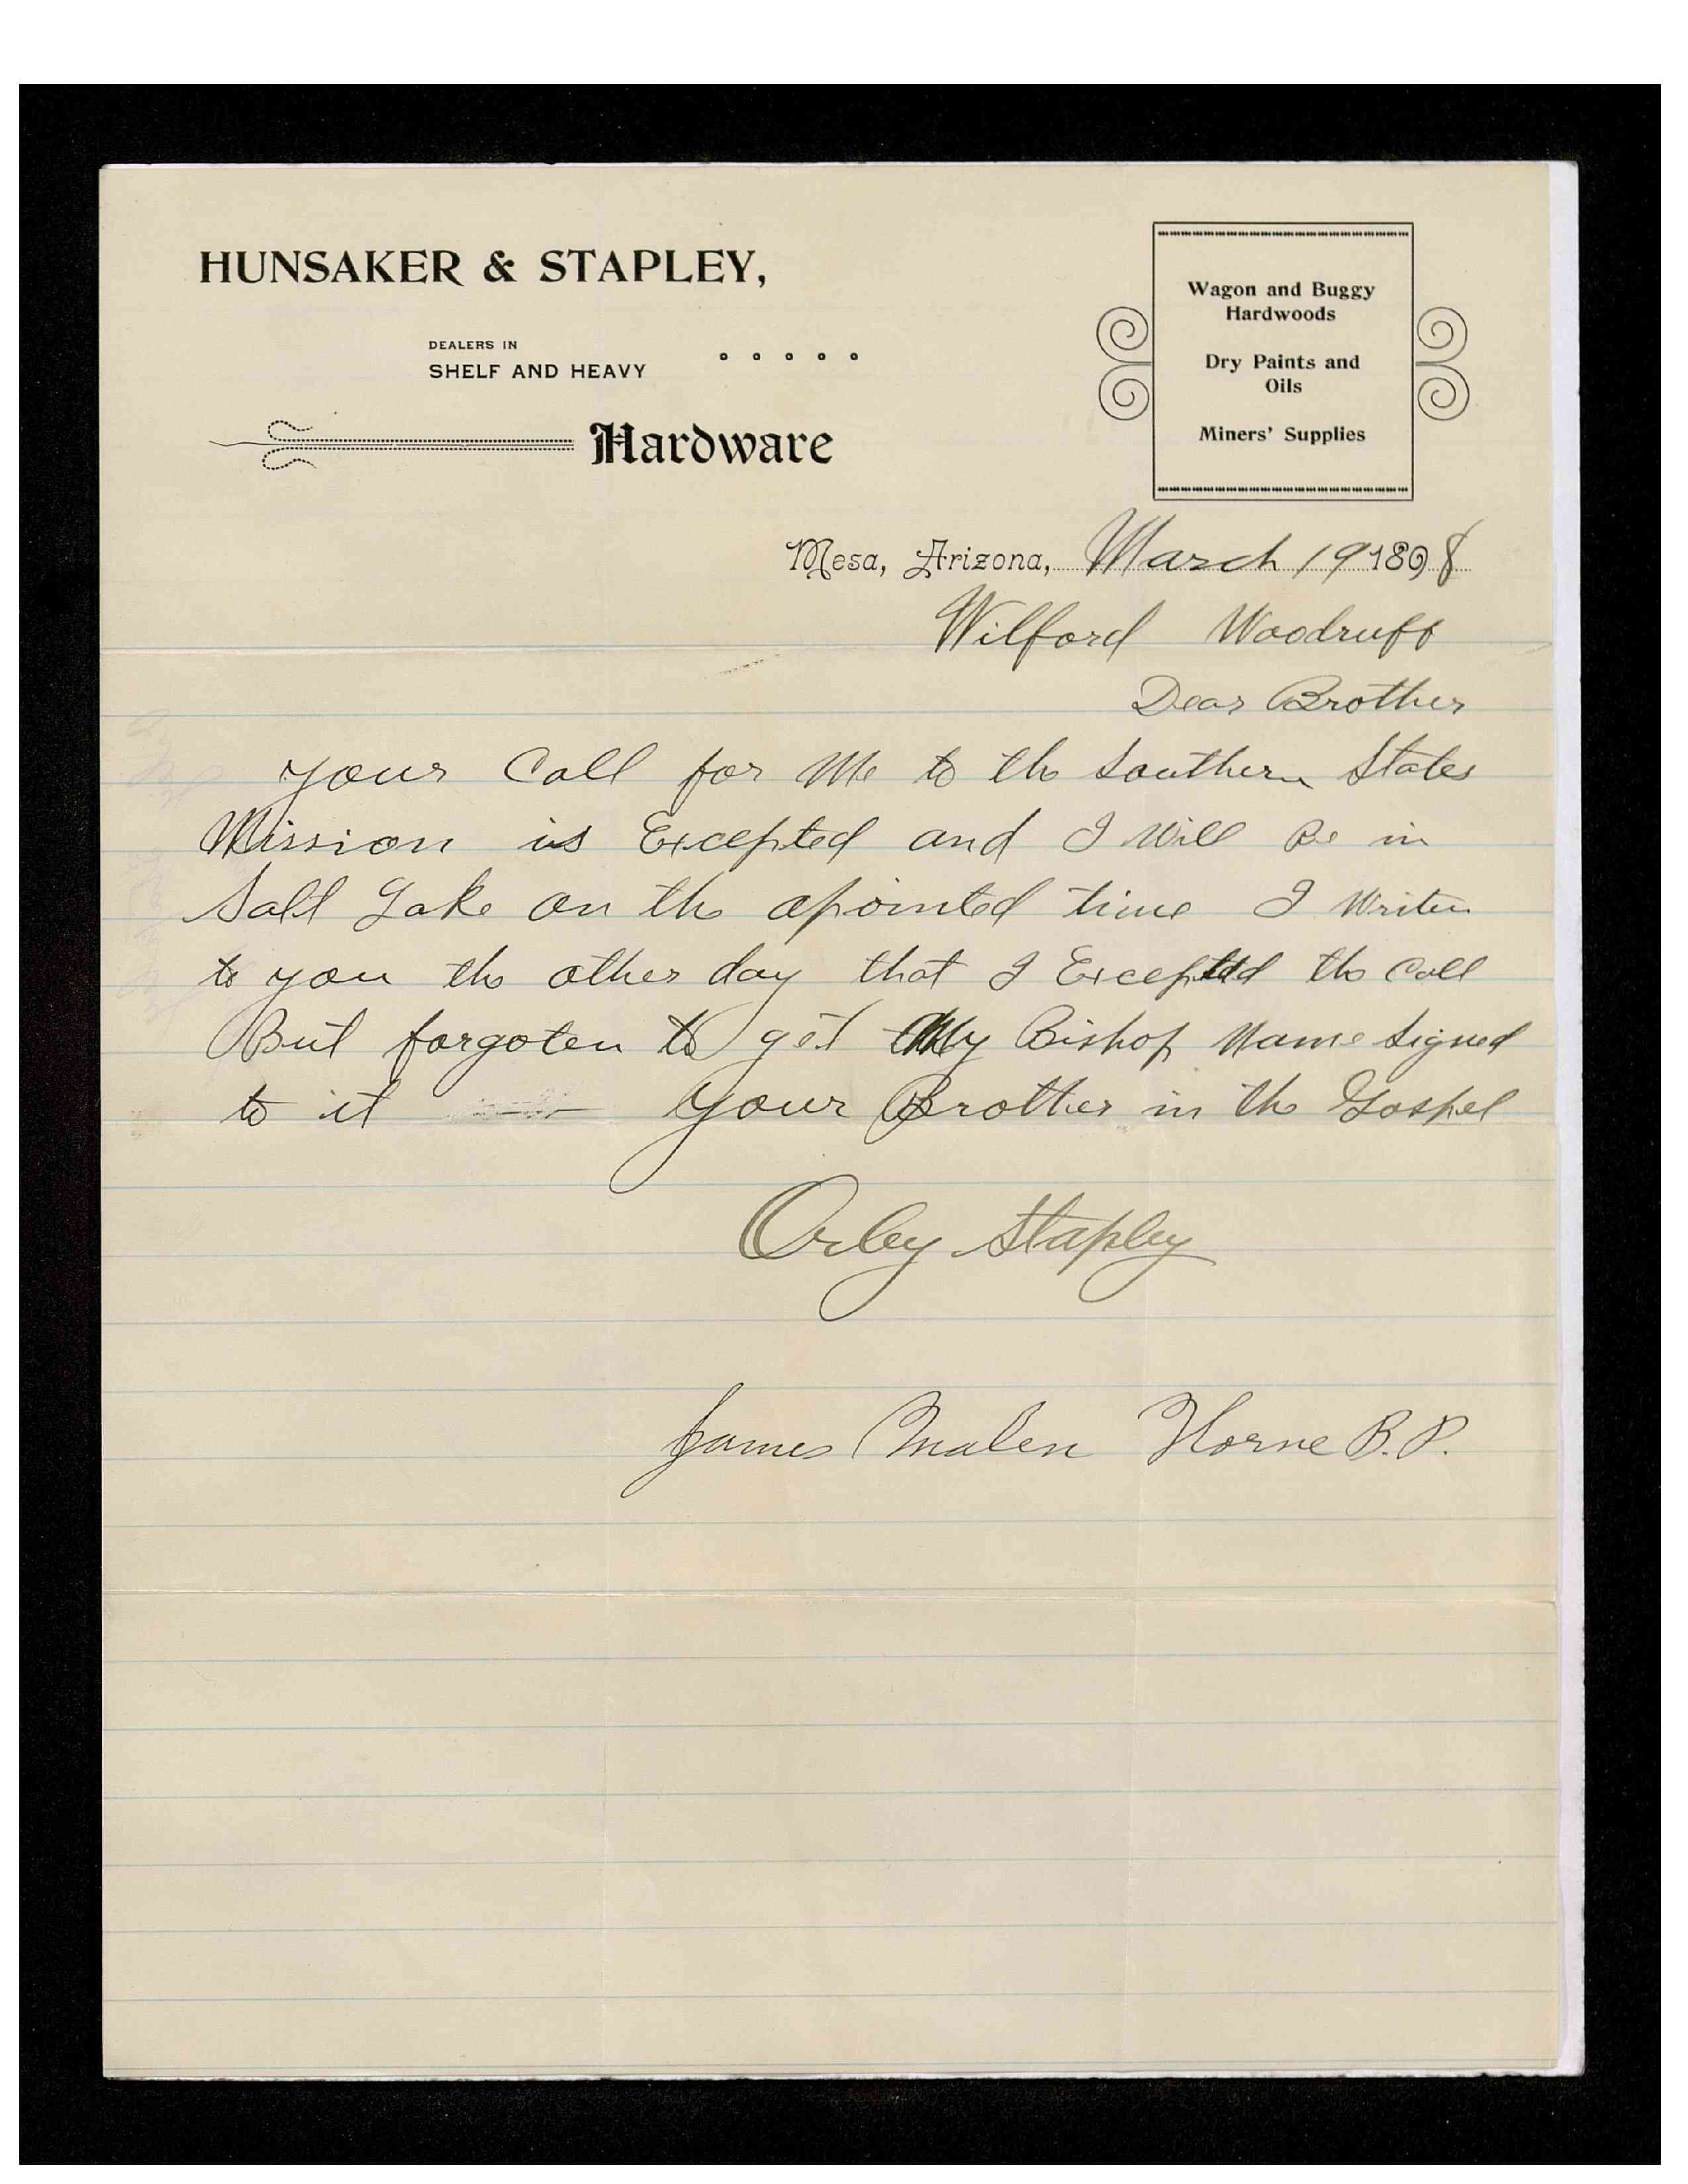 HUNSAKER & STAPLEY,
DEALERS IN
SHELF AND HEAVY
Hardware
Wagon and Buggy
Hardwoods
Dry Paints and
Oils
Miners' Supplies
Mesa, Arizona, March 19 1898
Wilford Woodruff
Dear Brother
your Call for Me to the Southern States
Mission is Excepted and I Will Be in
Salt Lake on the apointed time I Writen
to you the other day that I Excepted the Call
But forgoten to get My Bishop Name Signed
to it Your Brother in the Gospel
Orley Stapley
James Malen Horne B.P.